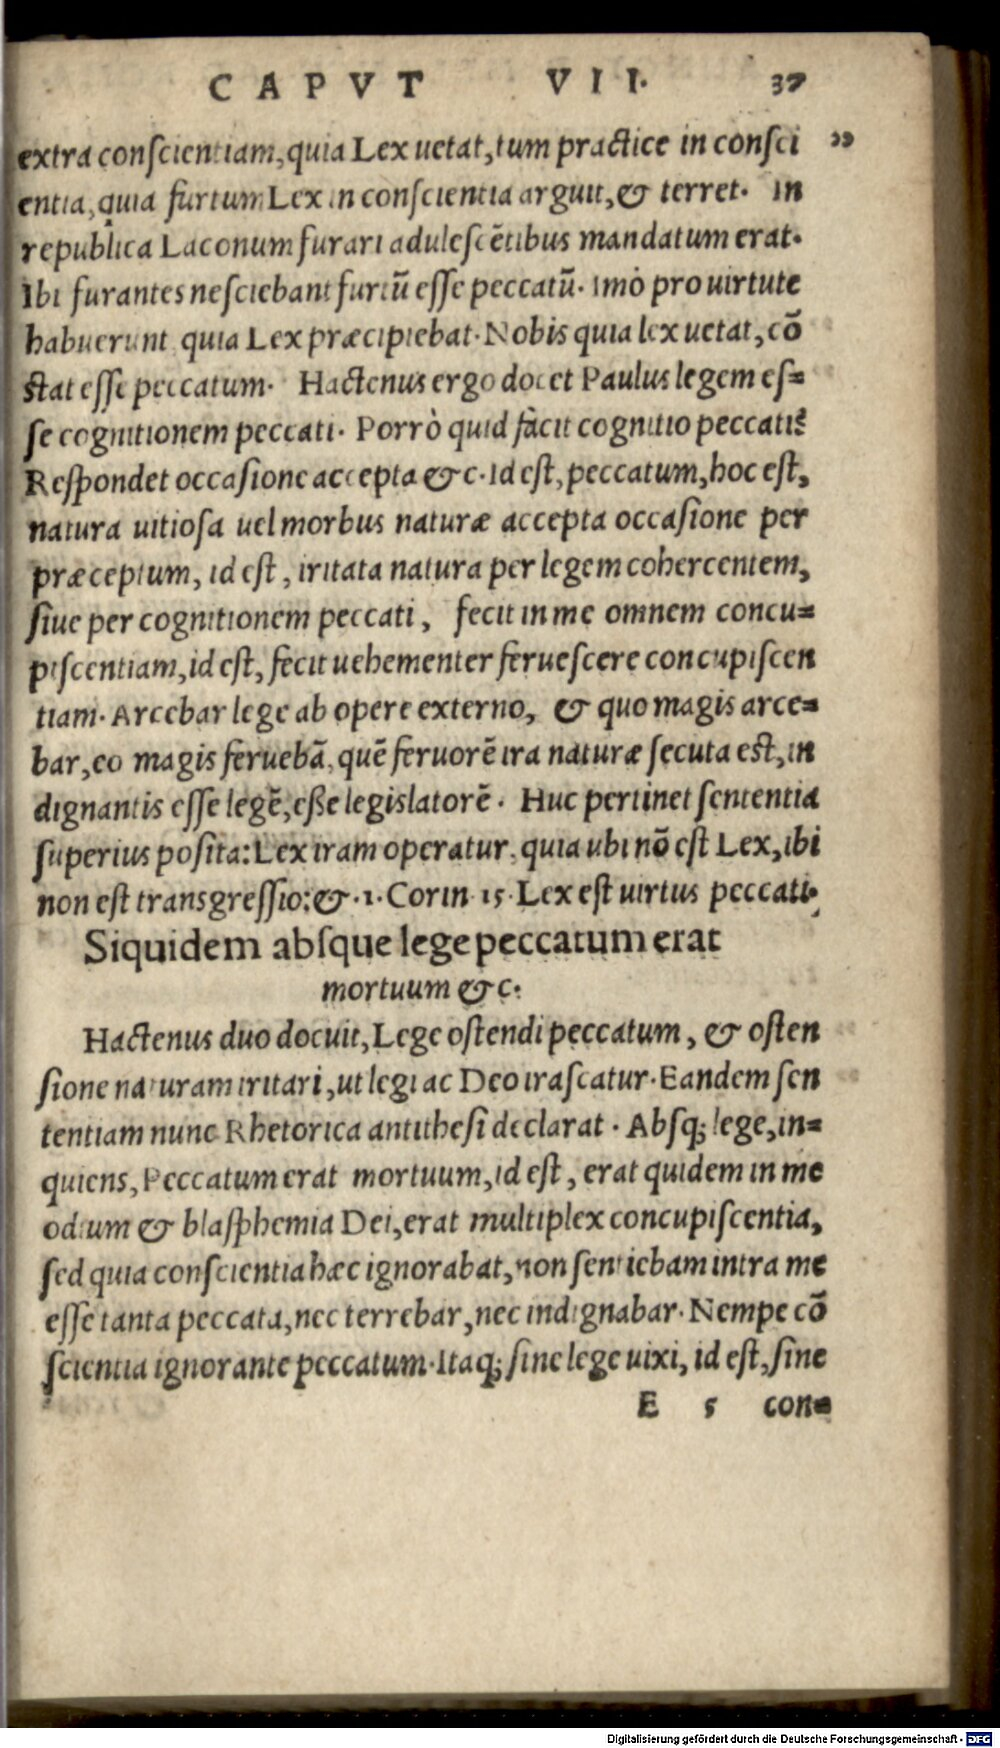 CAPVT VII. 37
extra conſcientiam, quia Lex uetat, tum practice in conſci
entia, quia furtum Lex in conſcientia arguit, & terret. In
republica Laconum furari aduleſcẽtibus mandatum erat.
Ibi furantes neſciebant furtũ eſſe peccatũ. imò pro uirtute
habuerunt quia Lex præcipiebat. Nobis quia lex uetat, cõ
ſtat eſſe peccatum. Hactenus ergo docet Paulus legem eſ=
ſe cognitionem peccati. Porrò quid facit cognitio peccati?
Reſpondet occaſione accepta &c. id eſt, peccatum, hoc eſt,
natura uitioſa uel morbus naturæ accepta occaſione per
præceptum, id eſt, iritata natura per legem cohercentem,
ſiue per cognitionem peccati, fecit in me omnem concu=
piſcentiam, id eſt, fecit uehementer ferueſcere concupiſcen
tiam. Arcebar lege ab opere externo, & quo magis arce=
bar, eo magis feruebã, quẽ feruorẽ ira naturæ ſecuta eſt, in
dignantis eſſe legẽ, eſße legislatorẽ. Huc pertinet ſententia
ſuperius poſita: Lex iram operatur, quia ubi nõ eſt Lex, ibi
non eſt transgreſſio: & .1. Corin 15. Lex eſt uirtus peccati.
Siquidem abſque lege peccatum erat
mortuum &c.
Hactenus duo docuit, Lege oſtendi peccatum, & oſten
ſione naturam iritari, ut legi ac Deo iraſcatur. Eandem ſen
tentiam nunc Rhetorica antitheſi declarat. Abſq; lege, in=
quiens, Peccatum erat mortuum, id eſt, erat quidem in me
odium & blaſphemia Dei, erat multiplex concupiſcentia,
ſed quia conſcientia hæc ignorabat, non ſentiebam intra me
eſſe tanta peccata, nec terrebar, nec indignabar. Nempe cõ
ſcientia ignorante peccatum. Itaq; ſine lege uixi, id eſt, ſine
E 5 con=
Digitalisierung gefördert durch die Deutsche Forschungsgemeinschaft - DFG